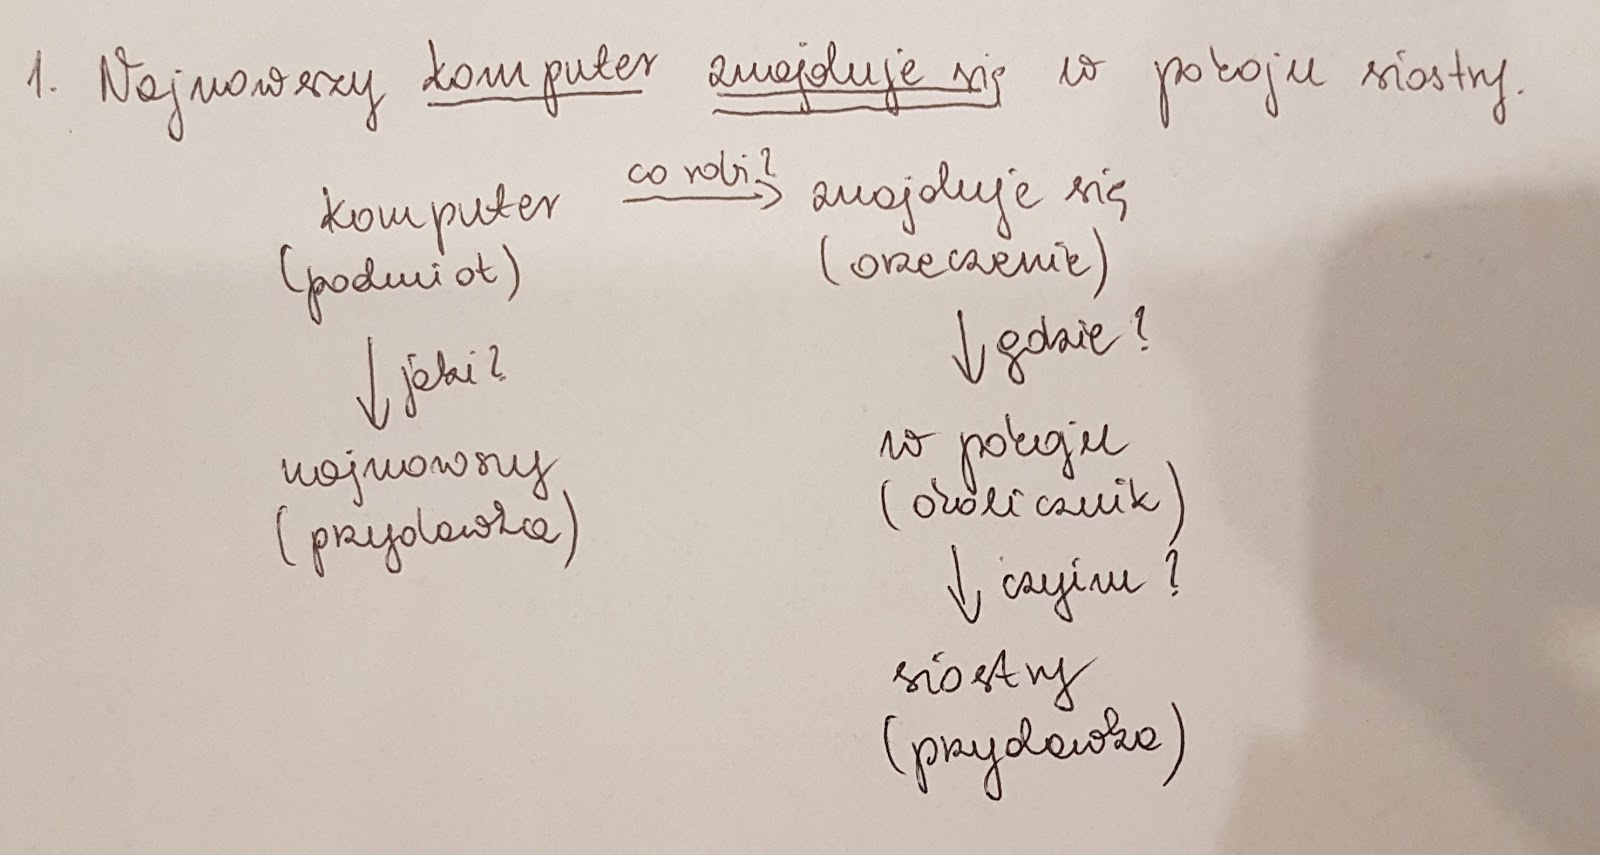 1. Najnowszy komputer znajduje się w pokoju siostry.
co robi?
komputer znajduje się
(podmiot) (orzeczenie)
jaki? gdzie?
najnowszy w pokoju
(przydawka) (okolicznik)
czyim?
siostry
(przydawka)